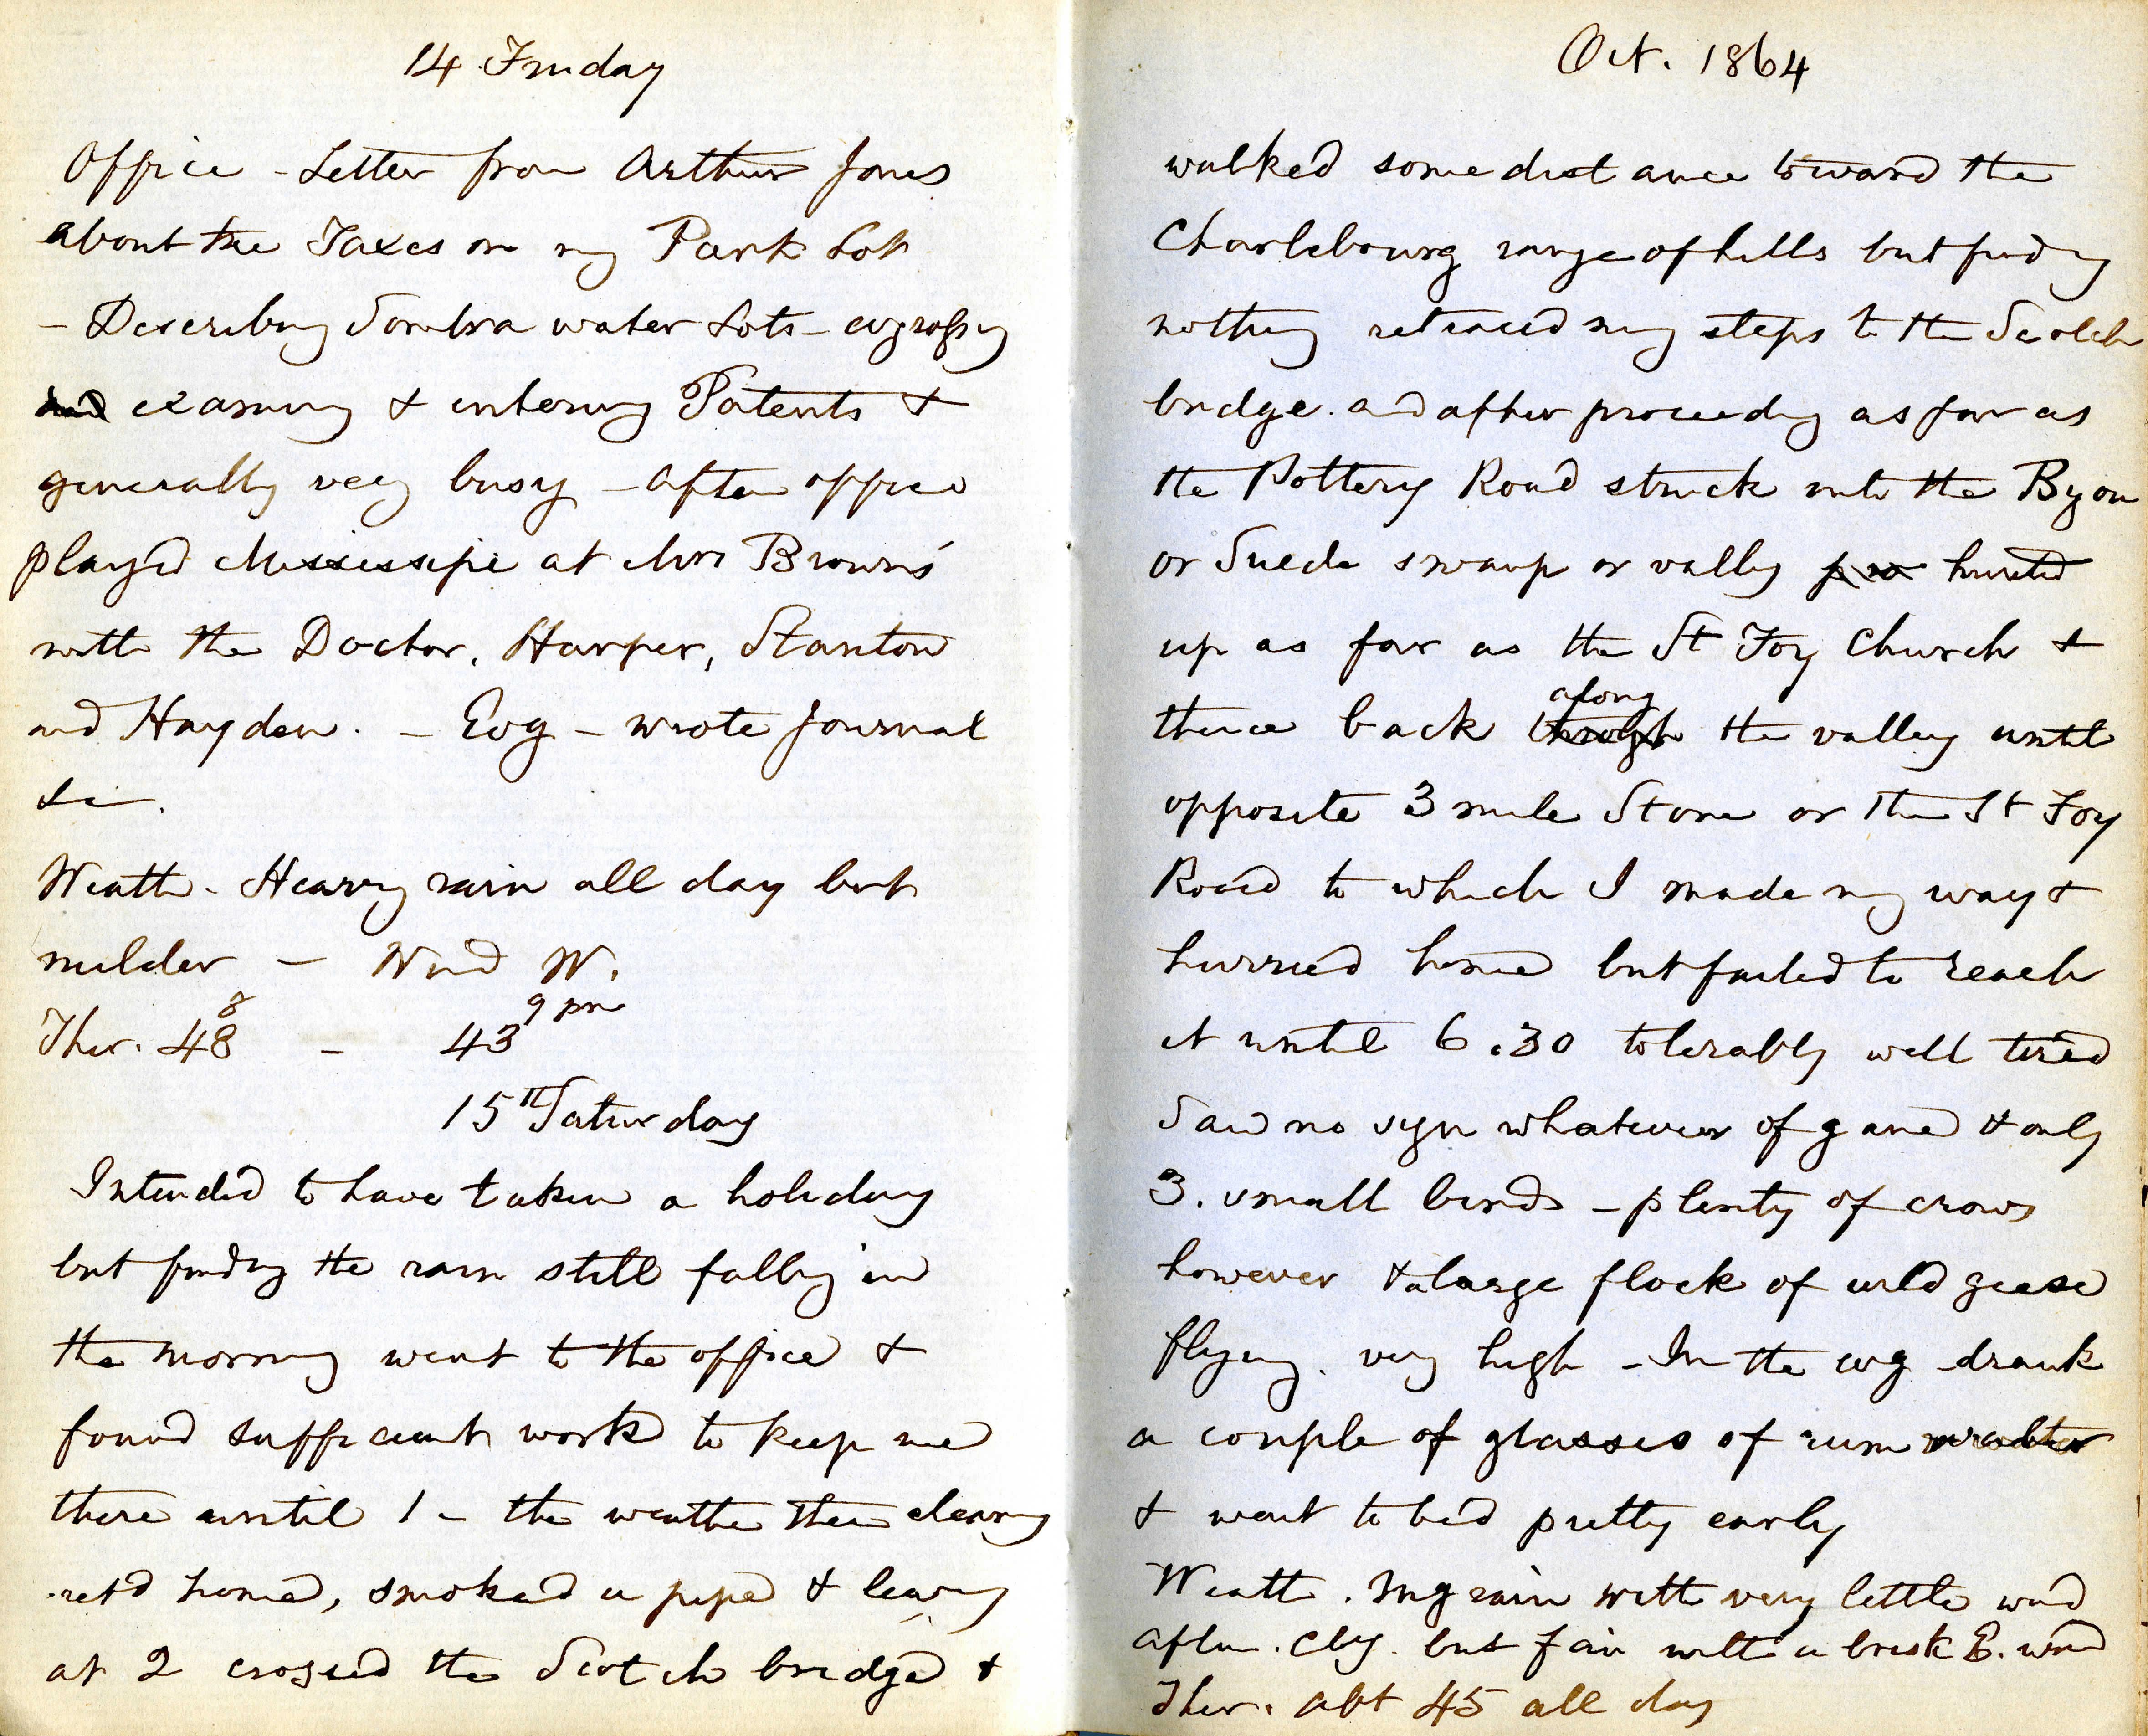 14 Friday
Office - Letter from Arthur Jones
about the Taxes on my Park Lot
- Describing Sombra water Lots - engrossing
and examing & entering Patents &
generally very busy - after office
played Mississipi at Mrs Browns'
with the Doctor, Harper, Stanton
and Hayden. - Evg - wrote Journal
&c.
Weath - Heavy rain all day but
milder - Wind W.
Ther. 48 8 - 43 9 pm
15th Saturday
Intended to have taken a holiday
but finding the rain still falling in
the morning went to the office &
found sufficient work to keep me
there until 1 - the weather then clearing
ret'd home, smoked a pipe & leaving
at 2 crossed the Scotch bridge &
Oct. 1864
walked some distance toward the
Charlebourg range of hills but finding
nothing retraced my steps to the Scotch
bridge. and after proceeding as far as
the Pottery Road struck into the Byou
or Suede swamp or valley hunted
up as far as the St Foy Church &
thence back through along the valley until
opposite 3 mile Stone on the St Foy
Road to which I made my way &
hurried home but failed to reach
it until 6.30 tolerably well tired
Saw no sign whatever of game & only
3. small birds - plenty of crows
however & a large flock of wild geese
flying. very high - In the evg drank
a couple of glasses of rum
& went to bed pretty early
Weath. Mg rain with very little wind
aftn. cldy. but fair with a brisk E. wind
Ther. abt 45 all day